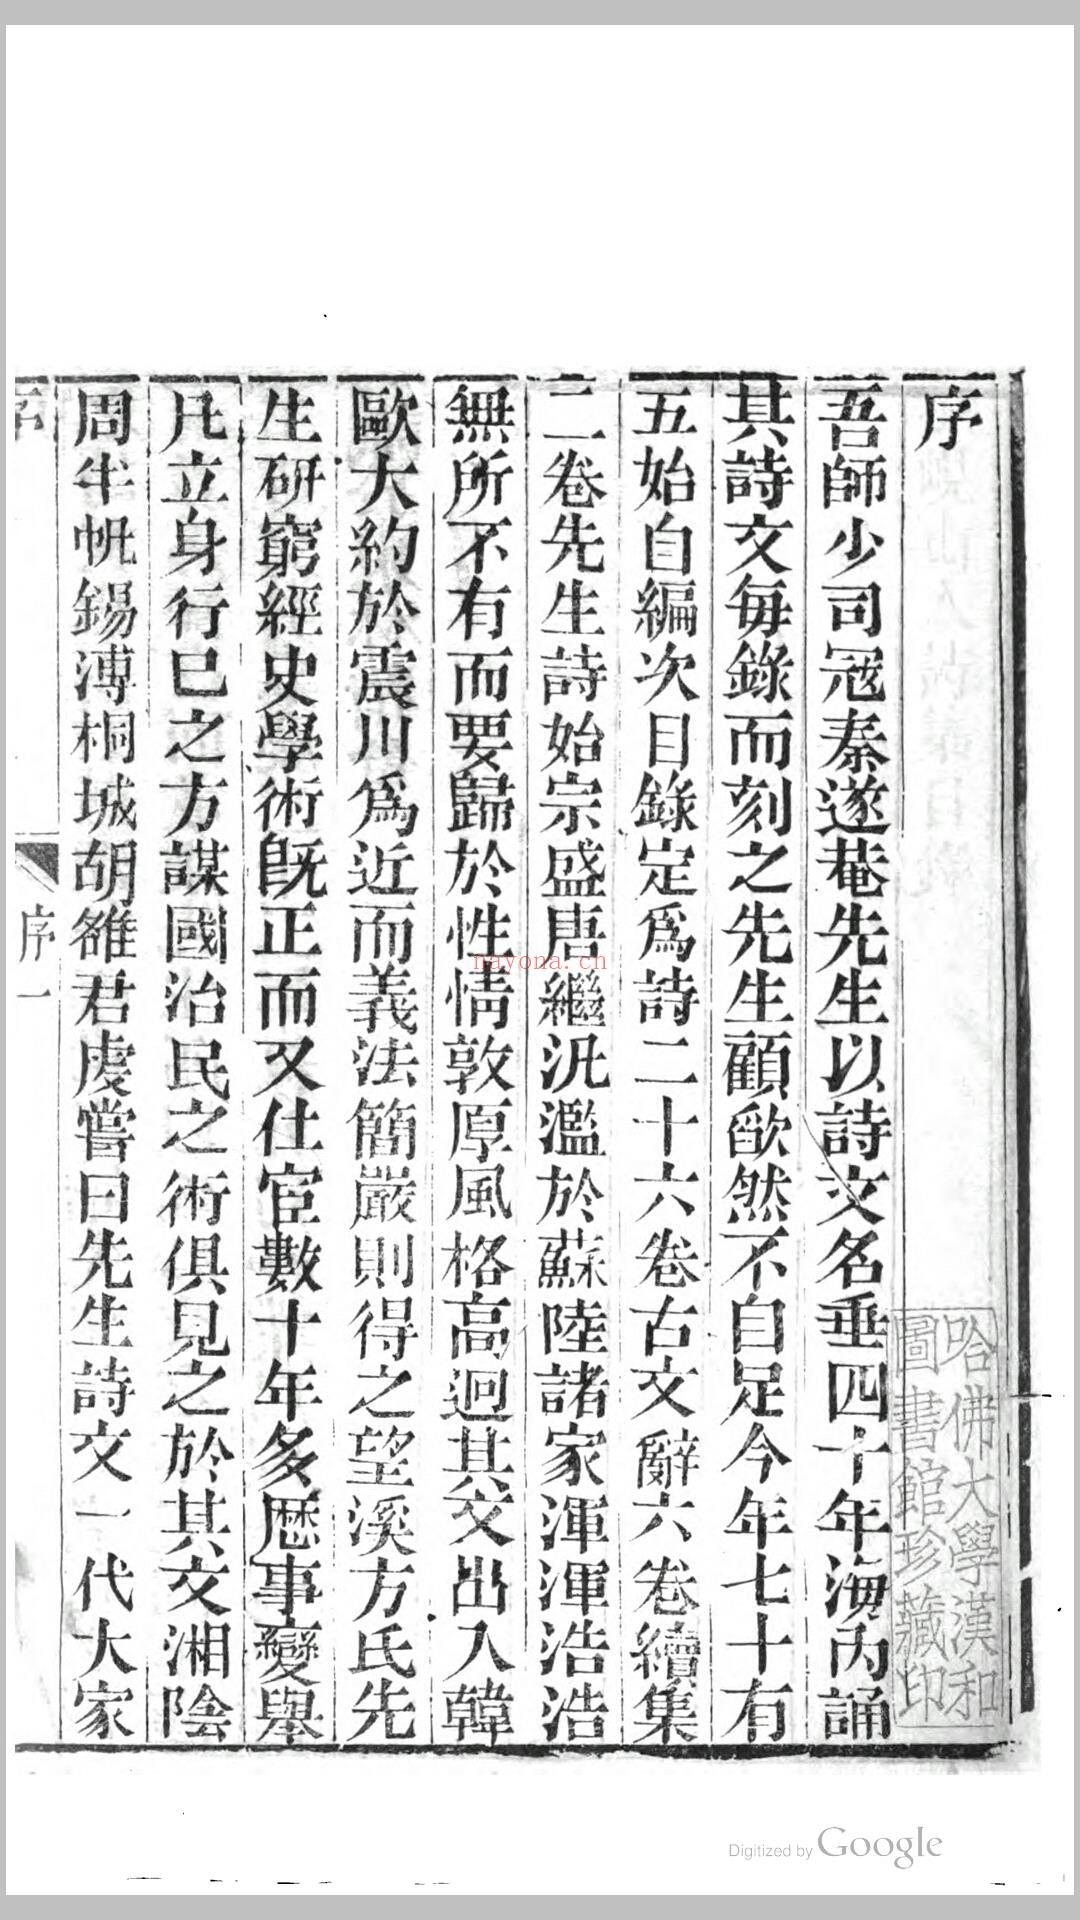 序
吾師少司冦秦遂菴先生以詩文名垂四十年海內誦
其詩文每錄而刻之先生顧欿然不自足今年七十有
五始自編次目錄定爲詩二十六卷古文辭六卷續集
二卷先生詩始宗盛唐繼汎濫於蘇陸諸家渾渾浩浩
無所不有而要歸於性情敦厚風格高迥其文出入韓
歐大約於震川爲近而義法簡嚴則得之望溪方氏先
生研窮經史學術旣正而又仕宦數十年多歷事變舉
凡立身行巳之方謀國治民之術俱見之於其文湘陰
周半帆錫溥桐城胡雒君虔嘗曰先生詩文一代大家
序一
哈佛大學漢和
圖書館珍藏印
nayona.cn
Digitized by Google